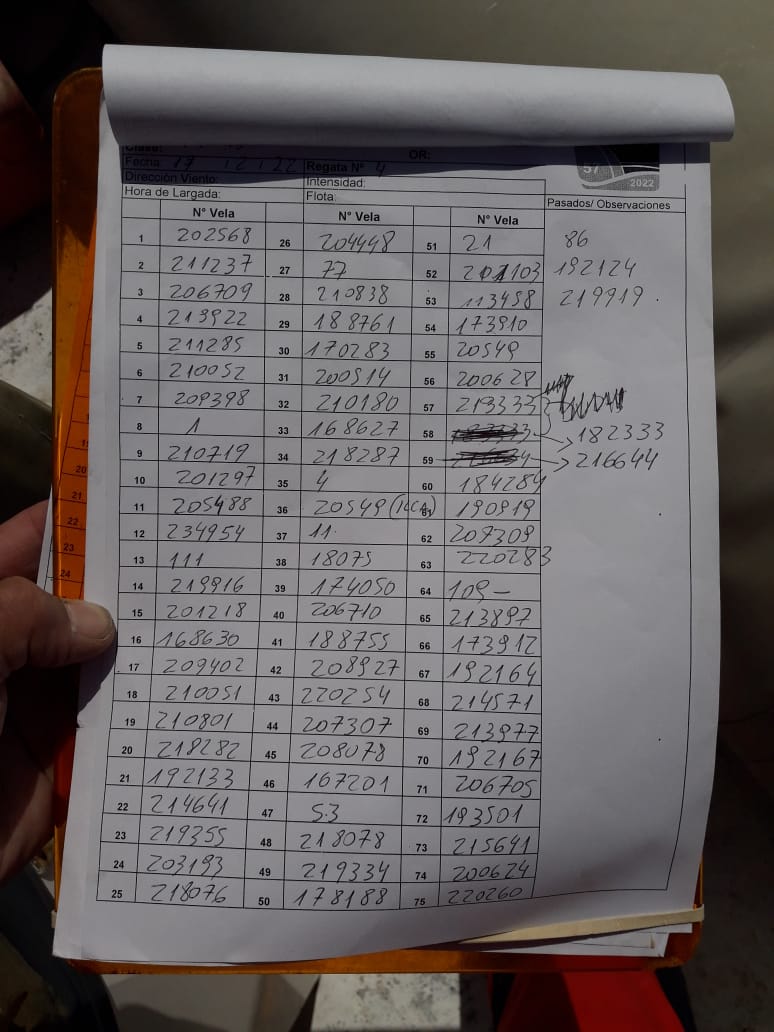 OR:
Fecha: 17 12 22 Regata Nº 4
57
2022
Dirección Viento: Intensidad:
Hora de Largada: Flota: Pasados/ Observaciones
N° Vela N° Vela N° Vela
1 202568 26 204448 51 21 86
2 211237 27 77 52 201103 192124
3 206709 28 210838 53 113458 219919
4 213922 29 188761 54 173910
5 211285 30 170283 55 20549
6 210052 31 200514 56 200628
7 209398 32 210180 57 213333
8 1 33 168627 58 182333
9 210719 34 218287 59 216644
10 201297 35 4 60 184284
11 205488 36 20549 61 190919
12 234954 37 11 62 207309
13 111 38 18075 63 220283
14 219916 39 174050 64 109-
15 201218 40 206710 65 213897
16 168630 41 188755 66 173912
17 209402 42 208927 67 192164
18 210051 43 220254 68 214571
19 210801 44 207307 69 213977
20 218282 45 208078 70 192167
21 192133 46 167201 71 206705
22 214641 47 53 72 193501
23 219355 48 218078 73 215641
24 203193 49 219334 74 200624
25 218076 50 178188 75 220260